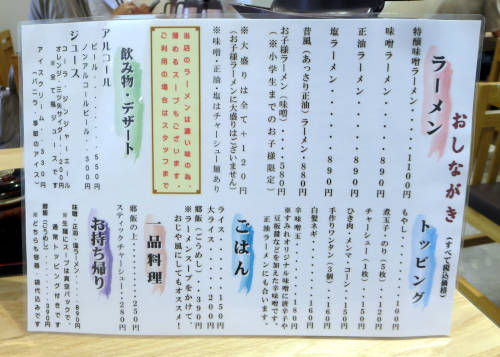 おしながき
(すべて税込価格)
ラーメン
特醸味噌ラーメン・・・・1100円
味噌ラーメン・・・・・・・890円
正油ラーメン・・・・・・・890円
塩ラーメン・・・・・・・・890円
昔風(あっさり正油)ラーメン・880円
お子様ラーメン(味噌)・・・580円
(※小学生までのお子様限定)
※大盛りは全て+120円
(お子様ラーメンに大盛りはございません)
※味噌・正油・塩はチャーシュー麺あり
当店のラーメンは濃い味の為、
薄めるスープもございます。
ご利用の場合はスタッフまで
飲み物・デザート
アルコール
ビール・・・・・・・550円
ノンアルコールビール・・300円
ジュース
コーラ ジンジャーエール
オレンジ 三ツ矢サイダー
※全て瓶ジュースです
トッピング
もやし・・・・・・・・・100円
煮玉子・のり(5枚)・・・120円
チャーシュー(1枚)・・・120円
ひき肉・メンマ・コーン・・150円
手作りワンタン(3個)・・160円
白髪ネギ・・・・・・・・160円
辛味噌玉・・・・・・・・180円
※すみれオリジナル味噌に唐辛子や
豆板醤などを加えた辛味噌です。
正油ラーメンにも合います。
ごはん
ライス・・・・・・・150円
大ライス・・・・・・200円
郷飯(ごうめし)・・・390円
※ラーメンスープをかけて、
おじや風にしてもオススメ!
一品料理
郷飯の上・・・・・・・250円
スティックチャーシュー・280円
お持ち帰り
味噌・正油・塩ラーメン・・・890円
※生麺にスープは真空パックで、
通常トッピング付きです
郷飯(ごうめし)・・・390円
※どちらも容器・袋代込みです